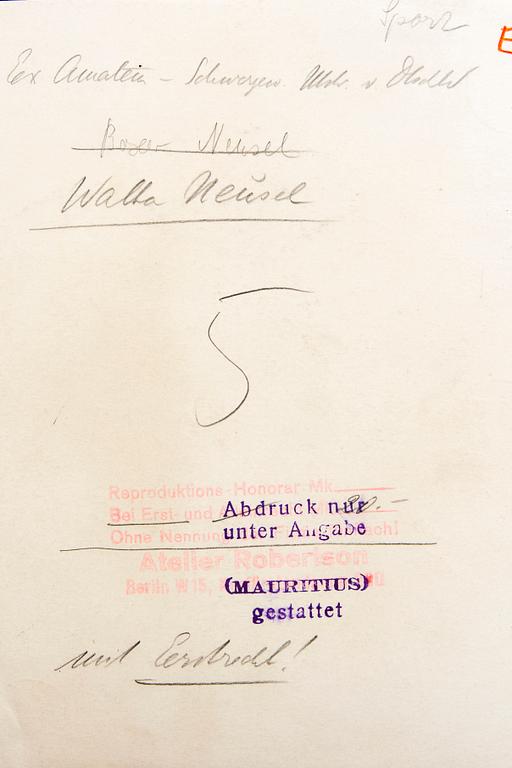 Sport
E
Ex Amateur – Schwergew. Mstr. v. Dtschld
Boxer Neusel
Walter Neusel
5
Reproduktions-Honorar Mk. 20.–
Bei Erst- und
Ohne Nennung
Atelier Robertson
Berlin W 15,
Abdruck nur
unter Angabe
(MAURITIUS)
gestattet
mit Erstrecht!